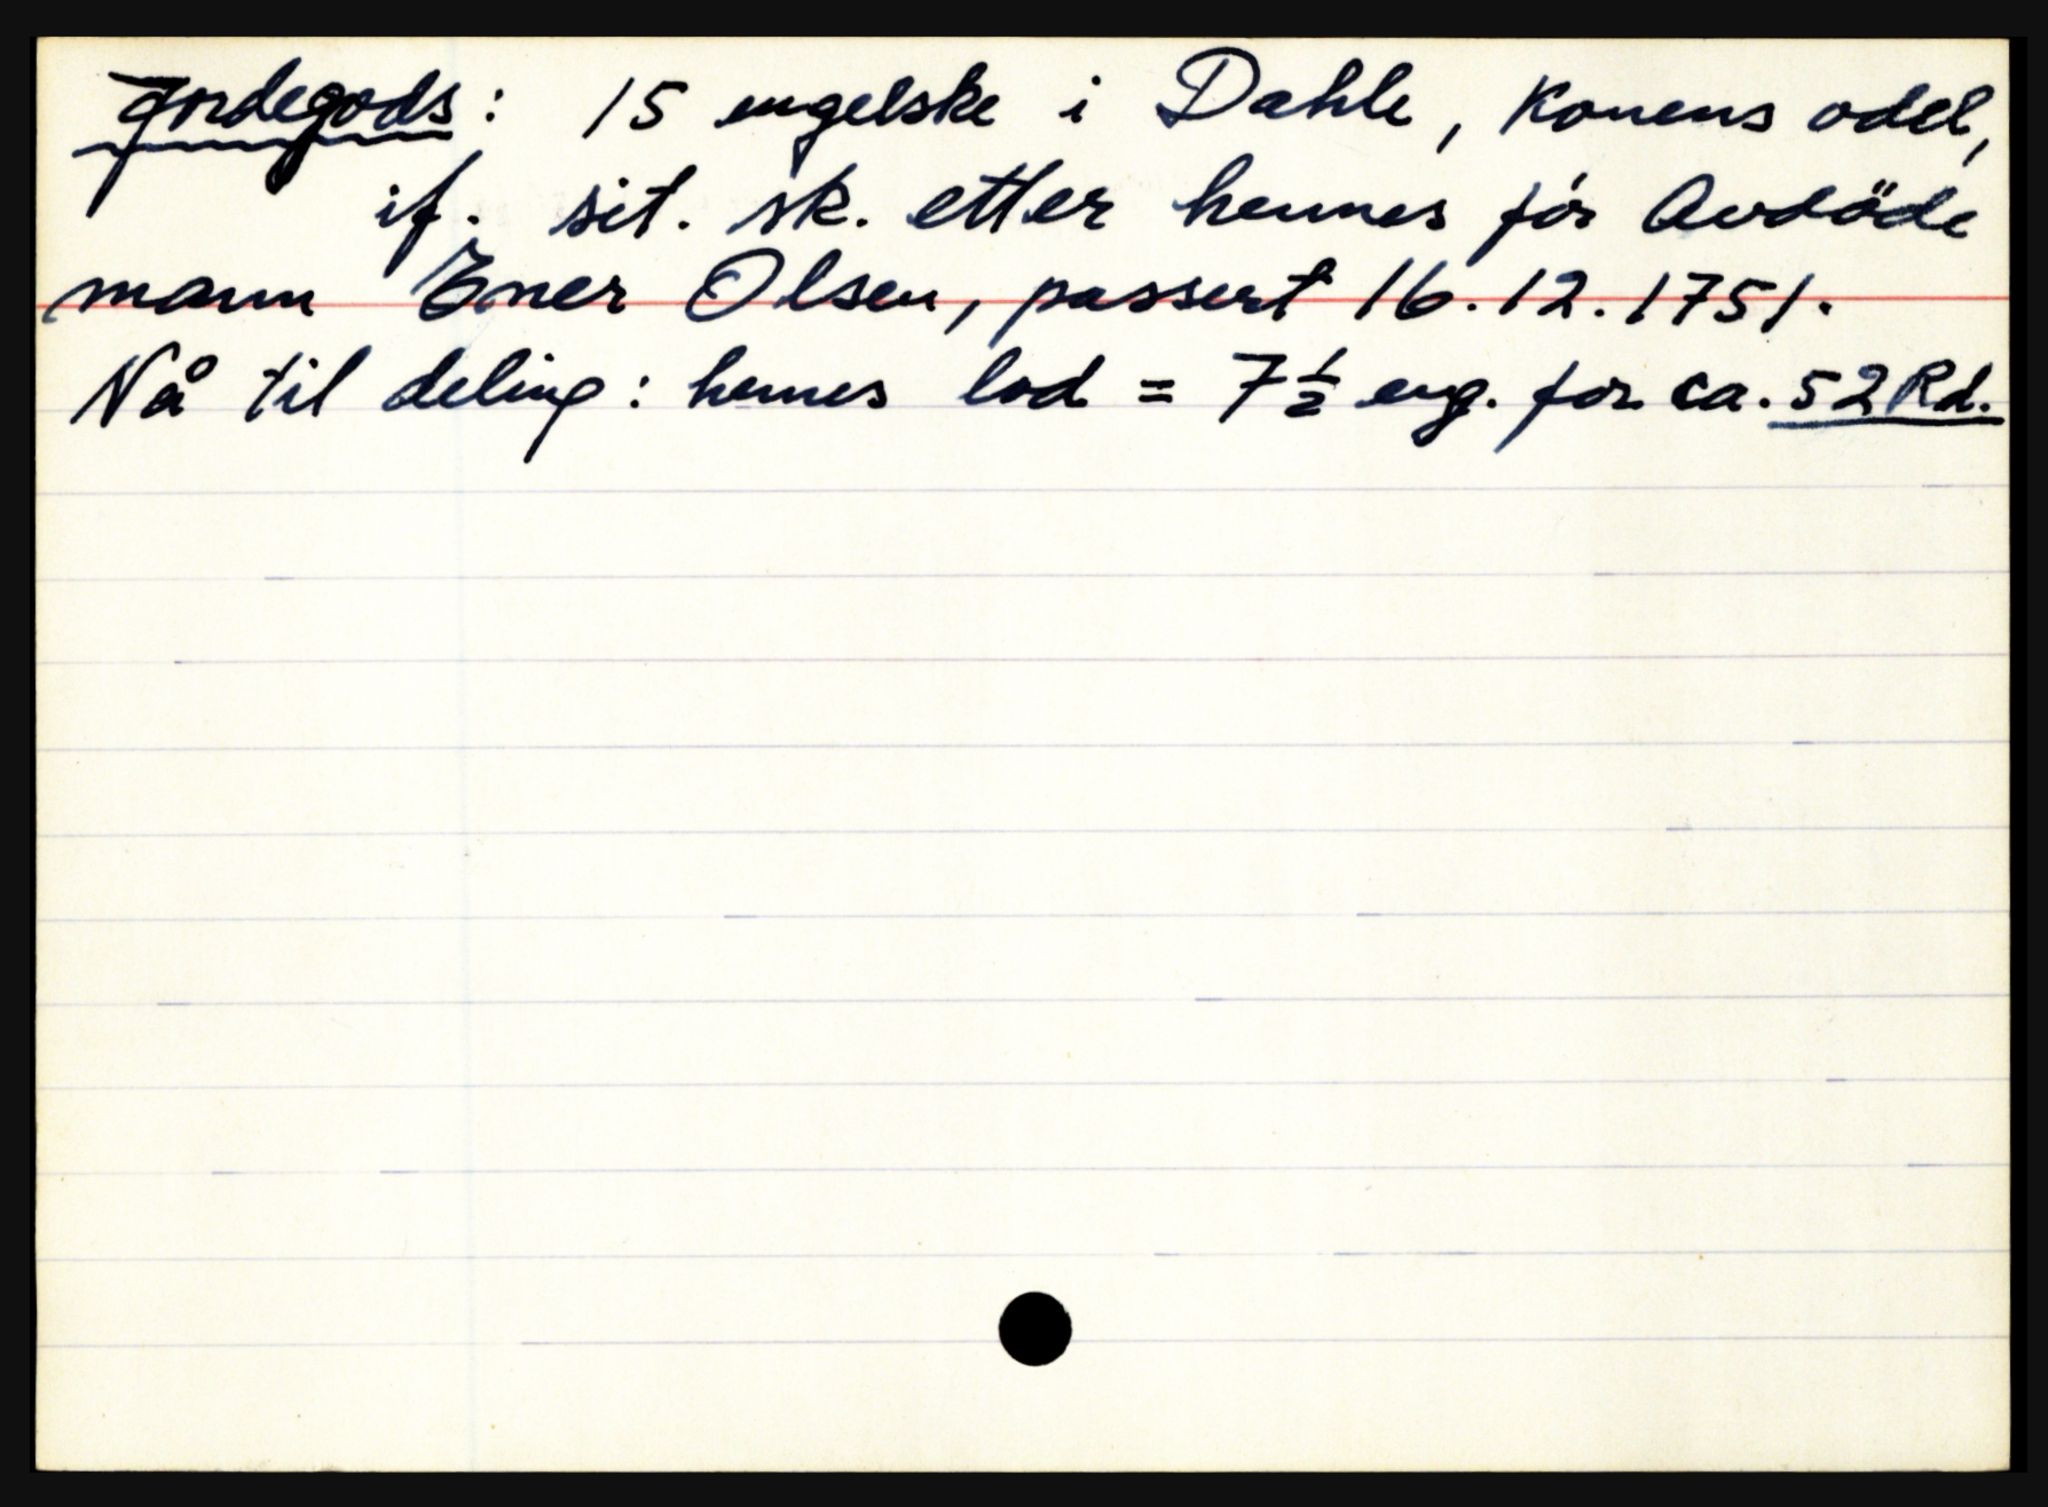 Jordegods: 15 engelske i Dahle, Konens odel,
if. sit. sk. etter hennes før Avdöde
mann Ener Olsen, passert 16.12.1751.
Nå til deling: hennes lod = 7½ eng. for ca. 52 Rd.